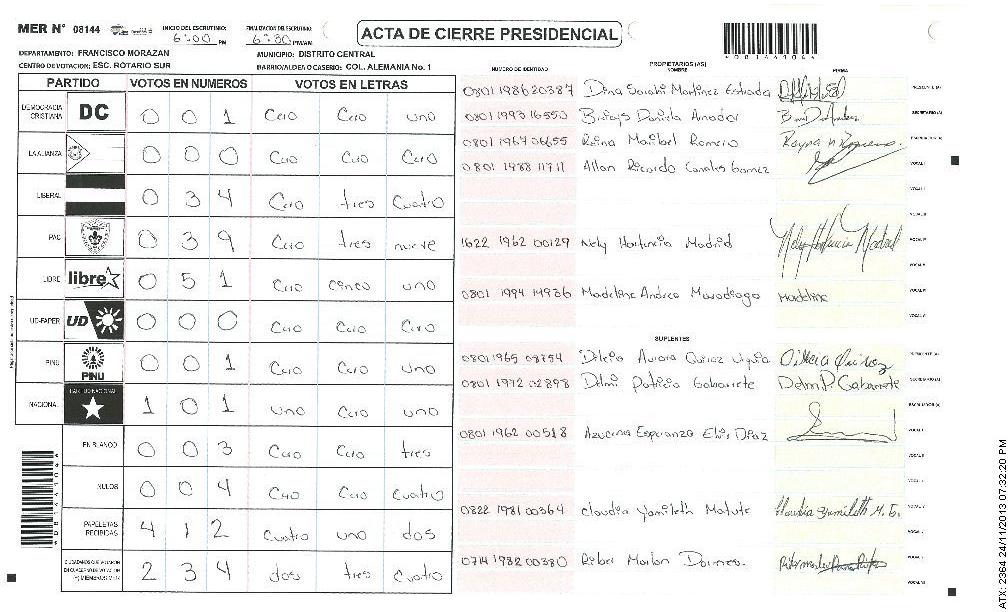 MER N° 08144
INICIO DEL ESCRUTINIO:
6:00 PM
FINALIZACION DEL ESCRUTINIO:
PM/AM
ACTA DE CIERRE PRESIDENCIAL
DEPARTAMENTO: FRANCISCO MORAZAN
MUNICIPIO: DISTRITO CENTRAL
CENTRO DE VOTACION: ESC. ROTARIO SUR
BARRIO/ALDEA O CASERIO: COL. ALEMANIA No. 1
PARTIDO VOTOS EN NUMEROS VOTOS EN LETRAS
DEMOCRACIA CRISTIANA DC 0 0 1 Cero Cero uno
LA ALIANZA 0 0 0 Cero Cero Cero
LIBERAL 0 3 4 Cero tres Cuatro
PAC 0 3 9 Cero tres nueve
LIBRE libre 0 5 1 Cero cinco uno
UD-FAPER UD 0 0 0 Cero Cero Cero
PINU PINU 0 0 1 Cero Cero uno
NACIONAL PARTIDO NACIONAL 1 0 1 uno Cero uno
EN BLANCO 0 0 3 Cero Cero tres
NULOS 0 0 4 Cero Cero Cuatro
PAPELETAS RECIBIDAS 4 1 2 Cuatro uno dos
2 3 4 dos tres Cuatro
PROPIETARIOS (AS)
NUMERO DE IDENTIDAD NOMBRE FIRMA
0801 1986 20387 Dina Sarahi Martinez Estrada
0801 1993 16550 Daniela Amador
0801 1967 06655 Reina Maribel Romero
0801 1988 11711 Allan Ricardo Canales Gomez
1622 1962 00129 Nely Hortencia Madrid Nely Hortencia Madrid
0801 1994 14936 Madeline Andrea Madeline
SUPLENTES
0801 1965 08754 Aurora
0801 1972 02898 Delmi Patricia Gabarrete Delmi P. Gabarrete
0801 1962 00518 Azucena Esperanza Díaz
0822 1981 00364 Claudia Yamileth Matute Claudia Yamileth M.
0714 1982 00380 Marlon
ATX: 2364 24/11/2013 07:32:20 PM